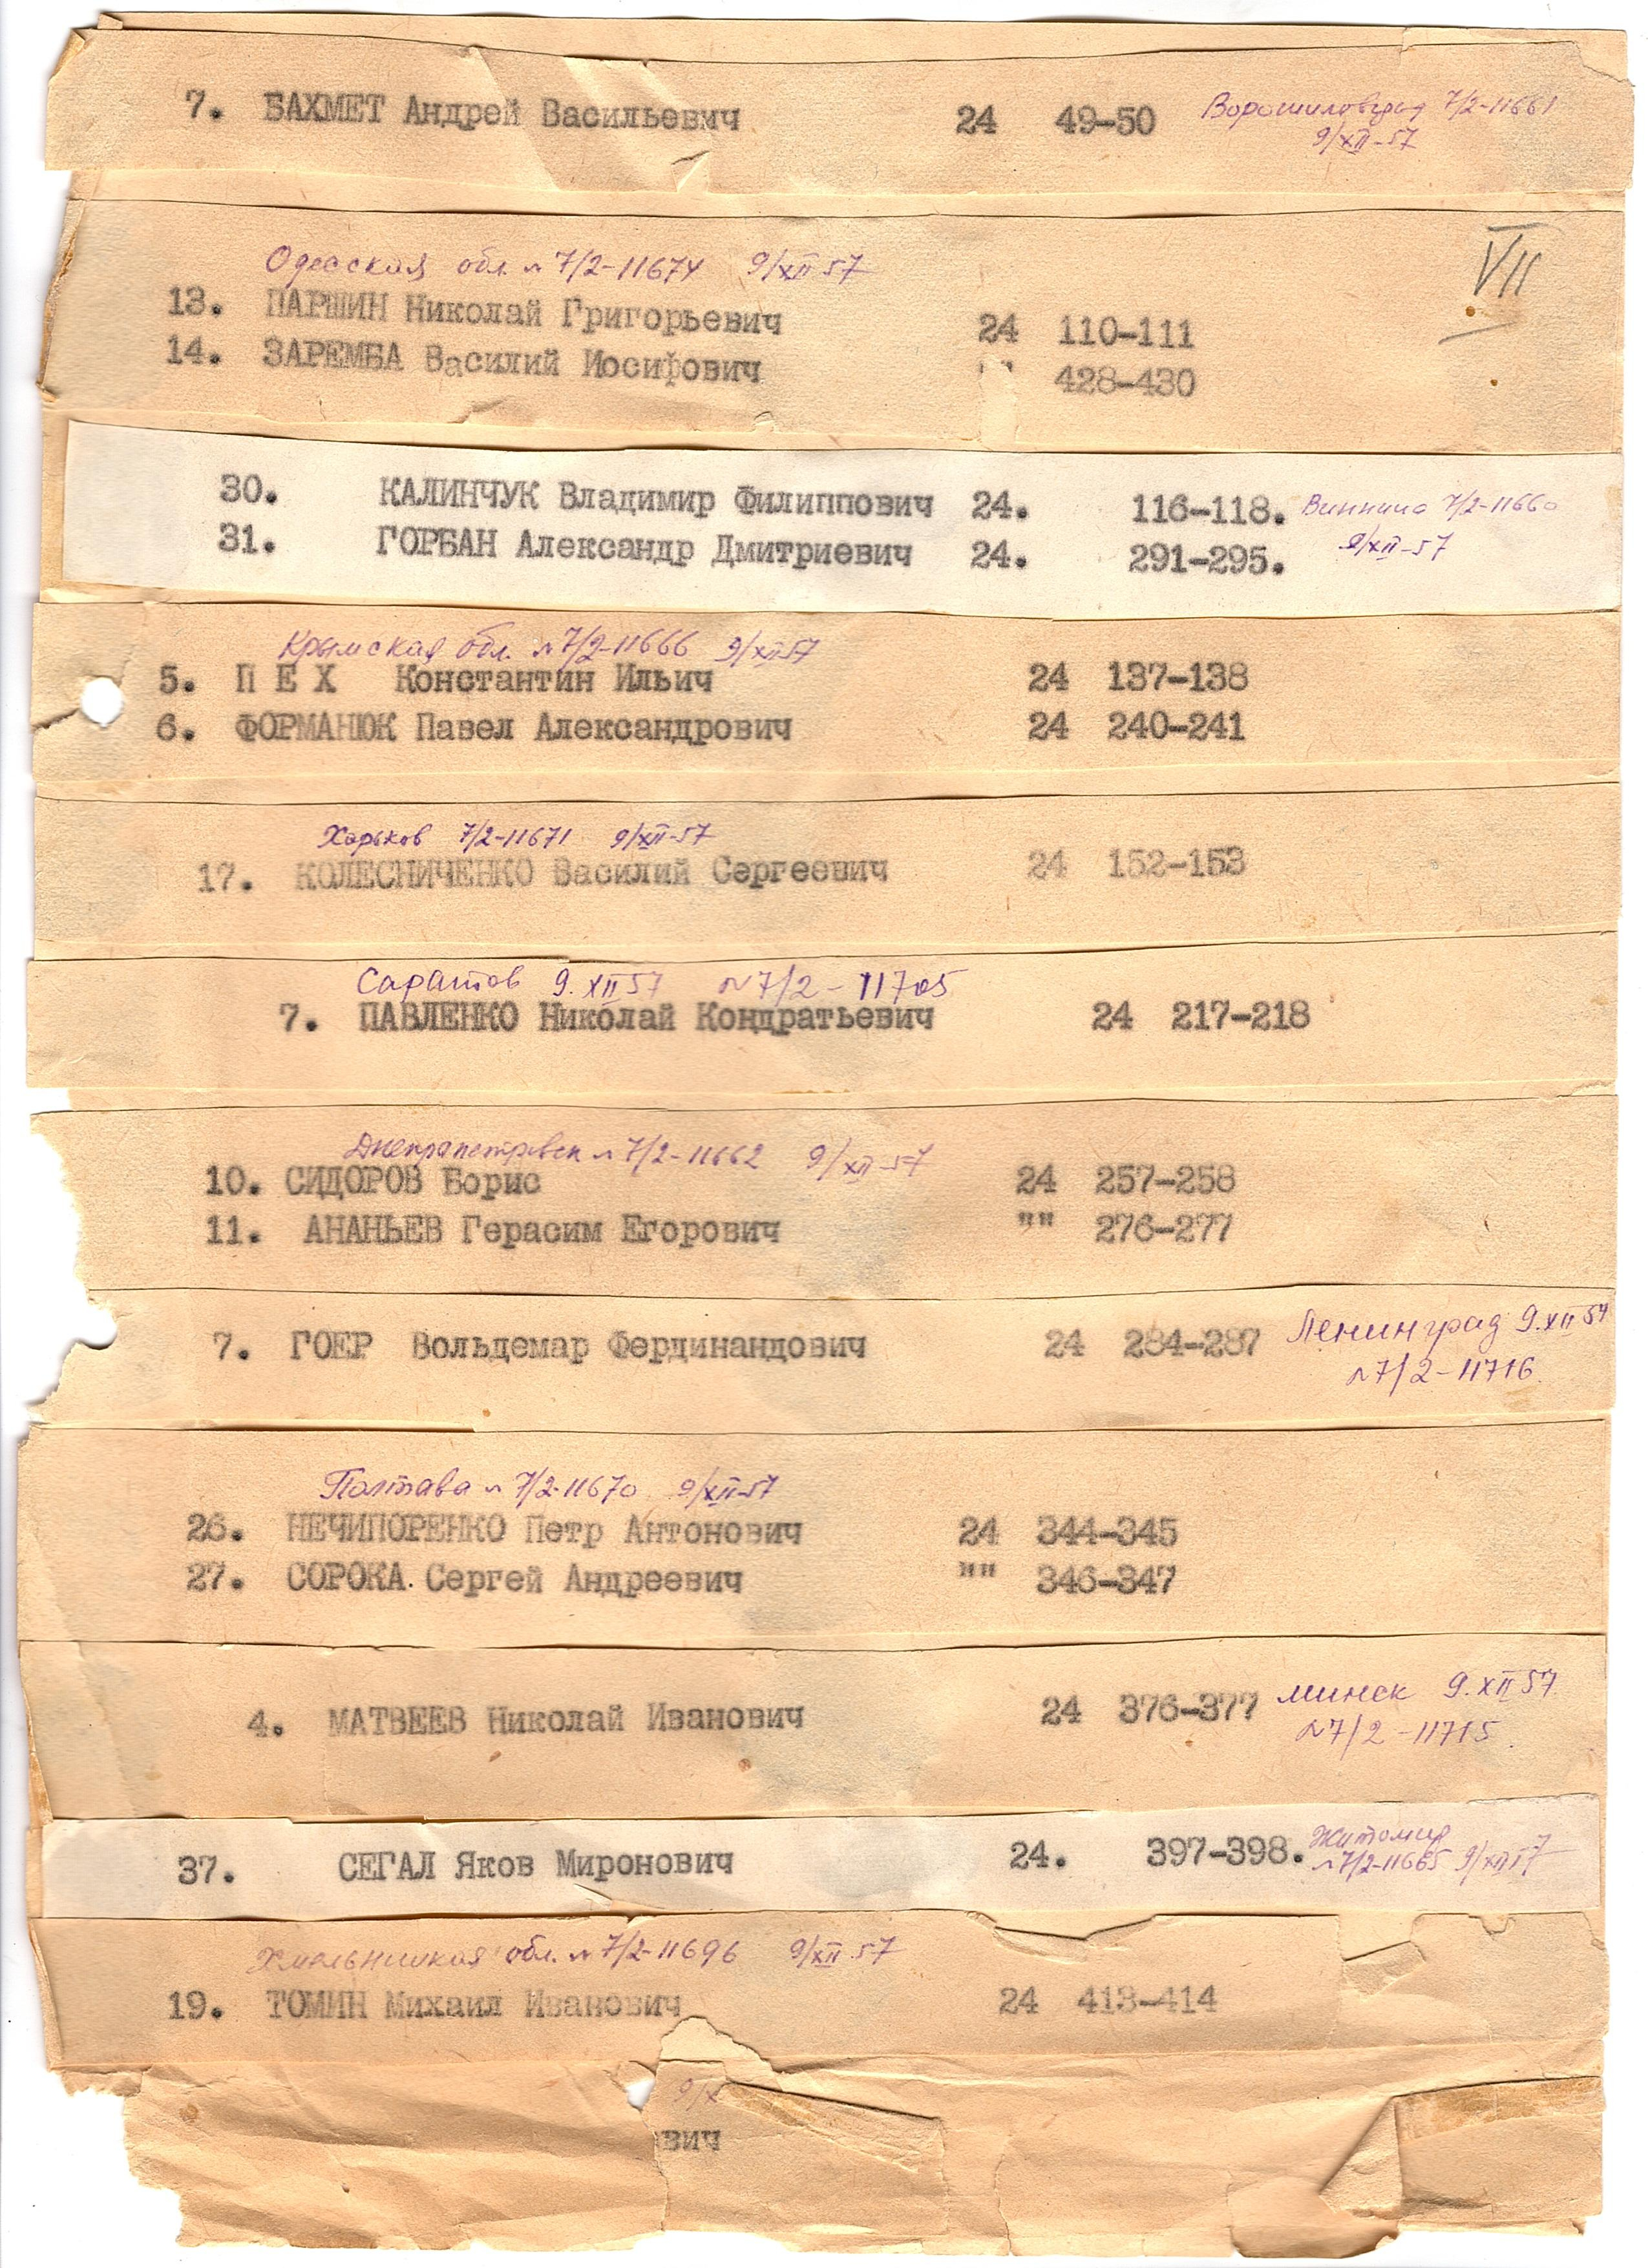 7. БАХМЕТ Андрей Васильевич 24 49-50 Ворошиловград 7/2-11661
9/XII-57
VII
Одесская обл. № 7/2-11674 9/XII 57
13. ПАРШИН Николай Григорьевич 24 110-111
14. ЗАРЕМБА Василий Иосифович " 428-430
30. КАЛИНЧУК Владимир Филиппович 24. 116-118. Винница 7/2-11660
31. ГОРБАН Александр Дмитриевич 24. 291-295. 9/XII-57
Крымская обл. № 7/2-11666 9/XII57
5. П Е Х Константин Ильич 24 137-138
6. ФОРМАНЮК Павел Александрович 24 240-241
Харьков 7/2-11671 9/XII-57
17. КОЛЕСНИЧЕНКО Василий Сергеевич 24 152-153
Саратов 9.XII57 №7/2-11705
7. ПАВЛЕНКО Николай Кондратьевич 24 217-218
Днепропетровск № 7/2-11662 9/XII-57
10. СИДОРОВ Борис 24 257-258
11. АНАНЬЕВ Герасим Егорович "" 276-277
7. ГОЕР Вольдемар Фердинандович 24 284-287 Ленинград 9.XII 57
№7/2-11716
Полтава № 7/2-11670 9/XII-57
26. НЕЧИПОРЕНКО Петр Антонович 24 344-345
27. СОРОКА Сергей Андреевич "" 346-347
4. МАТВЕЕВ Николай Иванович 24 376-377 Минск 9.XII57
№7/2-11715
37. СЕГАЛ Яков Миронович 24. 397-398. Житомир
№7/2-11665 9/XII57
Хмельницкая обл. № 7/2-11696 9/XII 57
19. ТОМИН Михаил Иванович 24 413-414
9/X
вич